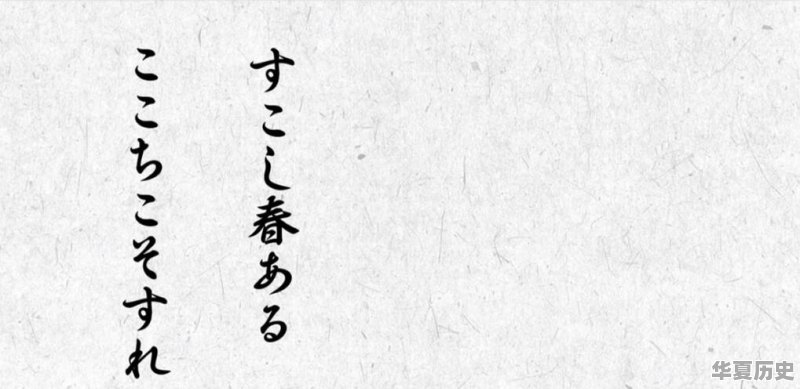 すこし春ある
ここちこそすれ
华夏历史